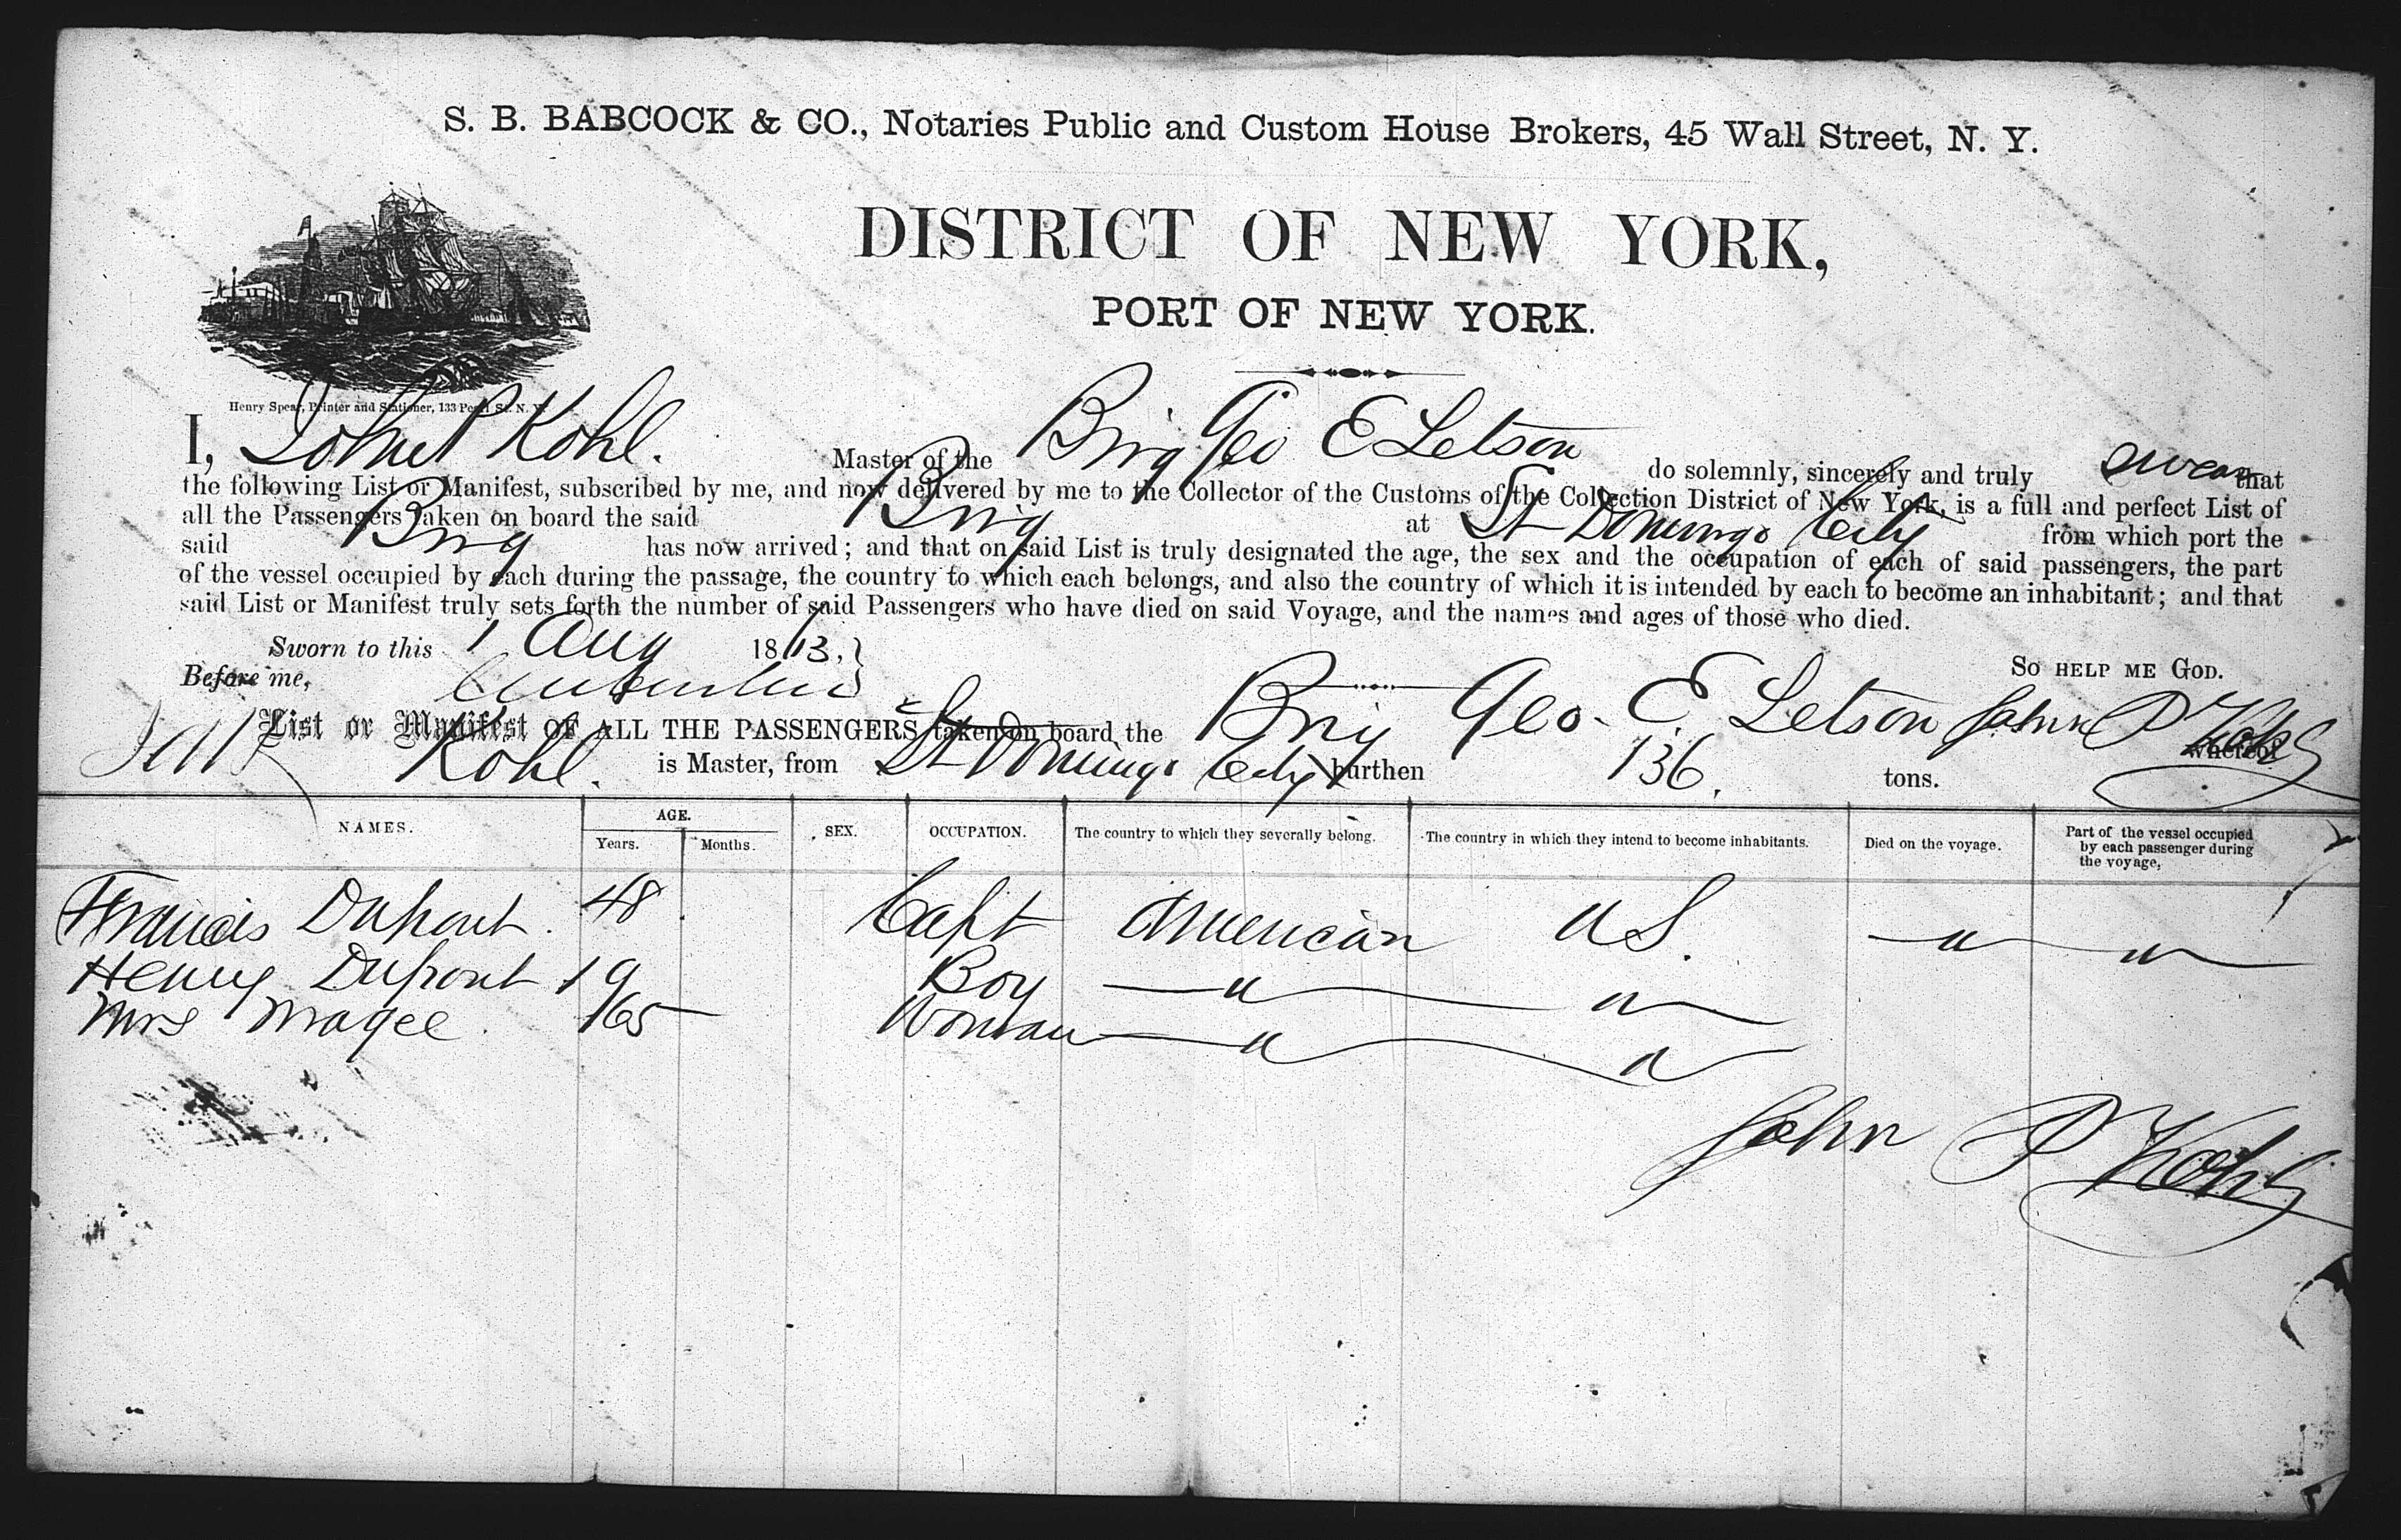 S. B. BABCOCK & CO., Notaries Public and Custom House Brokers, 45 Wall Street, N. Y.
DISTRICT OF NEW YORK,
PORT OF NEW YORK.
Henry Spear, Printer and Stationer, 133 Pearl St. N. Y.
I, John P Kohl. Master of the Brig Geo E Letson do solemnly, sincerely and truly swear that
the following List or Manifest, subscribed by me, and now delivered by me to the Collector of the Customs of the Collection District of New York, is a full and perfect List of
all the Passengers taken on board the said Brig at St Domingo City from which port the
said Brig has now arrived; and that on said List is truly designated the age, the sex and the occupation of each of said passengers, the part
of the vessel occupied by each during the passage, the country to which each belongs, and also the country of which it is intended by each to become an inhabitant; and that
said List or Manifest truly sets forth the number of said Passengers who have died on said Voyage, and the names and ages of those who died.
Sworn to this 1 Aug 1863, }
So HELP ME GOD.
Before me,
List or Manifest OF ALL THE PASSENGERS taken on board the Brig Geo. E Letson John P Kohl whereof
Kohl. is Master, from St Domingo City burthen 136. tons.
NAMES. AGE. Years. Months. SEX. OCCUPATION. The country to which they severally belong. The country in which they intend to become inhabitants. Died on the voyage. Part of the vessel occupied by each passenger during the voyage,
Francis Dupont. 48 Capt American U S. — " — " —
Henry Dupont 19 Boy — " — " —
Mrs Magee. 65 Woman — " — " —
John P Kohl